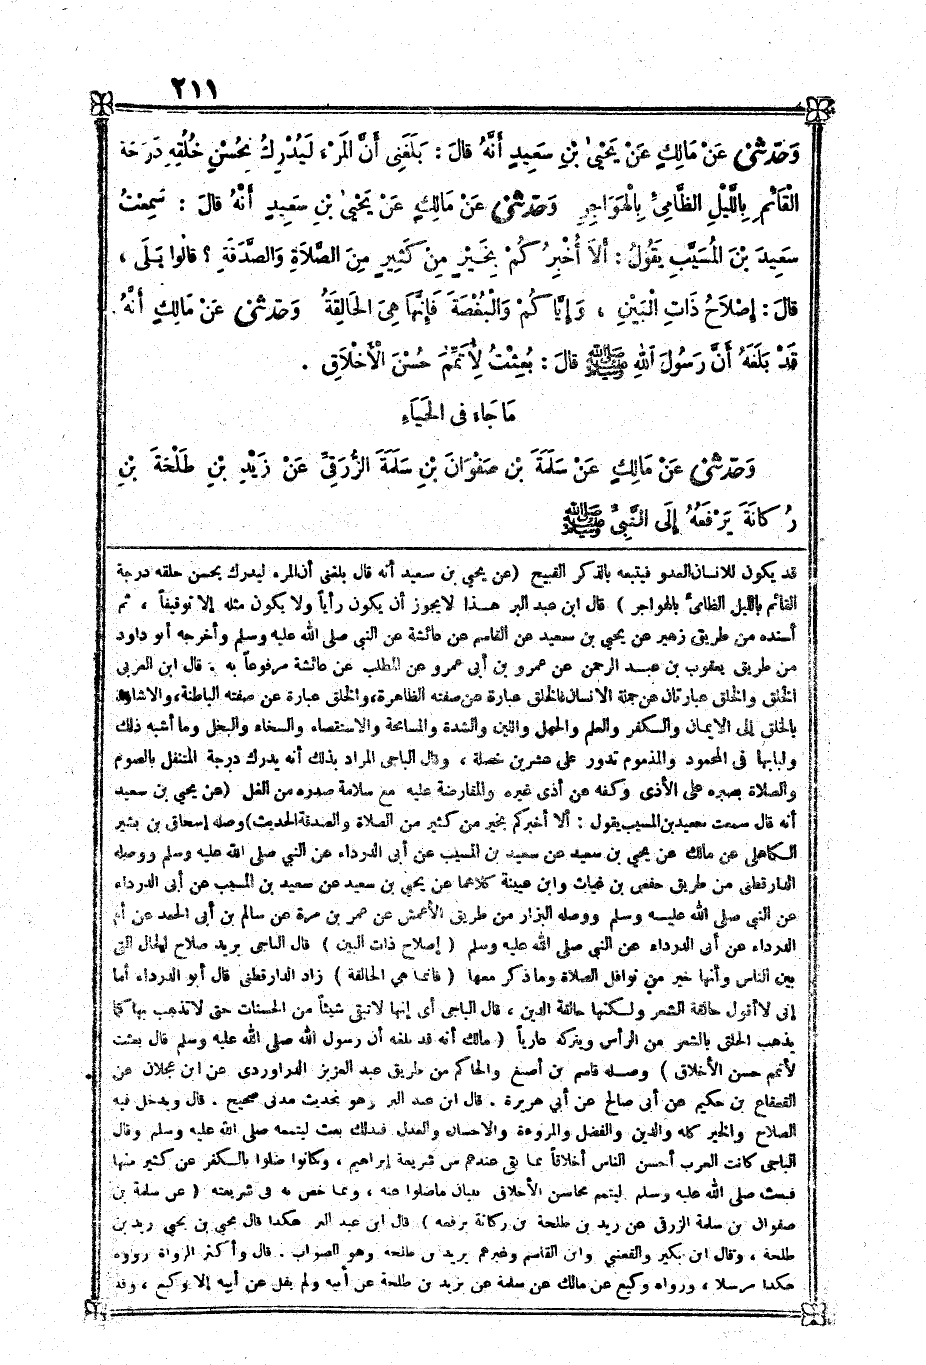 ٢١١
وَحَدَّثَنِى عَنْ مَالِكٍ عَنْ يَحْيَىٰ بْنِ سَعِيدٍ أَنَّهُ قَالَ : بَلَغَنِى أَنَّ الْمَرْءَ لَيُدْرِكُ بِحُسْنِ خُلُقِهِ دَرَجَةَ
الْقَائِمِ بِاللَّيْلِ الظَّامِئِ بِالْهَوَاجِرِ وَحَدَّثَنِى عَنْ مَالِكٍ عَنْ يَحْيَىٰ بْنِ سَعِيدٍ أَنَّهُ قَالَ : سَمِعْتُ
سَعِيدَ بْنَ الْمُسَيَّبِ يَقُولُ : أَلَا أُخْبِرُكُمْ بِخَيْرٍ مِنْ كَثِيرٍ مِنَ الصَّلَاةِ وَالصَّدَقَةِ ؟ قَالُوا بَلَى ،
قَالَ : إِصْلَاحُ ذَاتِ الْبَيْنِ ، وَإِيَّاكُمْ وَالْبُغْضَةَ فَإِنَّهَا هِىَ الْحَالِقَةُ وَحَدَّثَنِى عَنْ مَالِكٍ أَنَّهُ
قَدْ بَلَغَهُ أَنَّ رَسُولَ اللهِ ﷺ قَالَ : بُعِثْتُ لِأُتَمِّمَ حُسْنَ الْأَخْلَاقِ .
مَا جَاءَ فى الْحَيَاءِ
وَحَدَّثَنِى عَنْ مَالِكٍ عَنْ سَلَمَةَ بْنِ صَفْوَانَ بْنِ سَلَمَةَ الزُّرَقِىِّ عَنْ زَيْدِ بْنِ طَلْحَةَ بْنِ
رُكَانَةَ يَرْفَعُهُ إِلَى النَّبِىِّ ﷺ
قد يكون للانسان العدو فيتبعه بالذكر القبيح (عن يحيى بن سعيد أنه قال بلغنى أن المرء ليدرك بحسن خلقه درجة
القائم بالليل الظامئ بالهواجر ) قال ابن عبد البر هــذا لا يجوز أن يكون رأياً ولا يكون مثله إلا توقيفاً ، ثم
أسنده من طريق زهير عن يحيى بن سعيد عن القاسم عن عائشة عن النبي صلى الله عليه وسلم وأخرجه أبو داود
من طريق يعقوب بن عبــد الرحمن عن عمرو بن أبى عمرو عن المطلب عن عائشة مرفوعاً به . قال ابن العربى
الخلق والخلق عبارتان عن جملة الانسان فالخلق عبارة عن صفته الظاهرة، والخلق عبارة عن صفته الباطنة، والاشارة
بالخلق إلى الايمان والكفر والعلم والجهل واللين والشدة والمسامحة والاستقصاء والسخاء والبخل وما أشبه ذلك
ولبابها فى المحمود والمذموم تدور على عشرين خصلة ، وقال الباجى المراد بذلك أنه يدرك درجة المتنفل بالصوم
والصلاة بصبره على الأذى وكفه عن أذى غيره والمقارضة عليه مع سلامة صدره من الغل (عن يحيى بن سعيد
أنه قال سمعت سعيد بن المسيب يقول : ألا أخبركم بخير من كثير من الصلاة والصدقة الحديث) وصله إسحاق بن بشير
الكاهلى عن مالك عن يحيى بن سعيد عن سعيد بن المسيب عن أبى الدرداء عن النبي صلى الله عليه وسلم ووصله
الدارقطنى من طريق حفص بن غياث وابن عيينة كلاهما عن يحيى بن سعيد عن سعيد بن المسيب عن أبى الدرداء
عن النبي صلى الله عليــه وسلم ووصله البزار من طريق الأعمش عن عمر بن مرة عن سالم بن أبى الجعد عن أم
الدرداء عن أبى الدرداء عن النبي صلى الله عليه وسلم ( إصلاح ذات البين ) قال الباجى يريد صلاح الحال التى
بين الناس وأنها خير من نوافل الصلاة وما ذكر معها ( فانما هي الحالقة ) زاد الدارقطنى قال أبو الدرداء أما
إنى لا أقول حالقة الشعر ولكنها حالقة الدين ، قال الباجى أى إنها لا تبقى شيئاً من الحسنات حتى لا تذهب بها كما
يذهب الحلق بالشعر من الرأس ويتركه عارياً ( مالك أنه قد بلغه أن رسول الله صلى الله عليه وسلم قال بعثت
لأتمم حسن الأخلاق ) وصــله قاسم بن أصبغ والحاكم من طريق عبد العزيز الدراوردى عن ابن عجلان عن
القعقاع بن حكيم عن أبى صالح عن أبي هريرة . قال ابن عبد البر وهو بحديث مدنى صحيح . قال ويدخل فيه
الصلاح والخير كله والدين والفضل والمروءة والاحسان والعدل فبذلك بعث ليتممه صلى الله عليه وسلم وقال
الباجى كانت العرب أحسن الناس أخلاقاً بما بقى عندهم من شريعة إبراهيم ، وكانوا ضلوا بالكفر عن كثير منها
فبعث صلى الله عليه وسلم ليتمم محاسن الأخلاق ببيان ما ضلوا عنه ، وبما خص به فى شريعته ( عن سلمة بن
صفوان بن سلمة الزرقى عن زيد بن طلحة بن ركانة يرفعه ) قال ابن عبد البر هكذا قال يحيى بن يحيى زيد بن
طلحة ، وقال ابن بكير والقعنبي وابن القاسم وغيرهم يزيد بن طلحة وهو الصواب . قال وأكثر الرواة رووه
هكذا مرسلا ، ورواه وكيع عن مالك عن سلمة عن يزيد بن طلحة عن أبيه ولم يقل عن أبيه إلا وكيع ، وقد